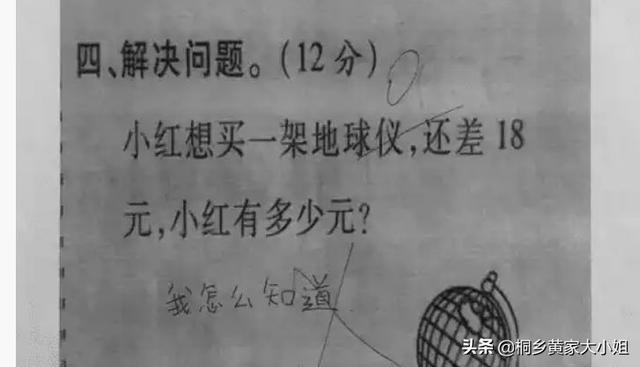 四、解决问题。(12分)
0
小红想买一架地球仪,还差18
元,小红有多少元?
我怎么知道
头条 @桐乡黄家大小姐